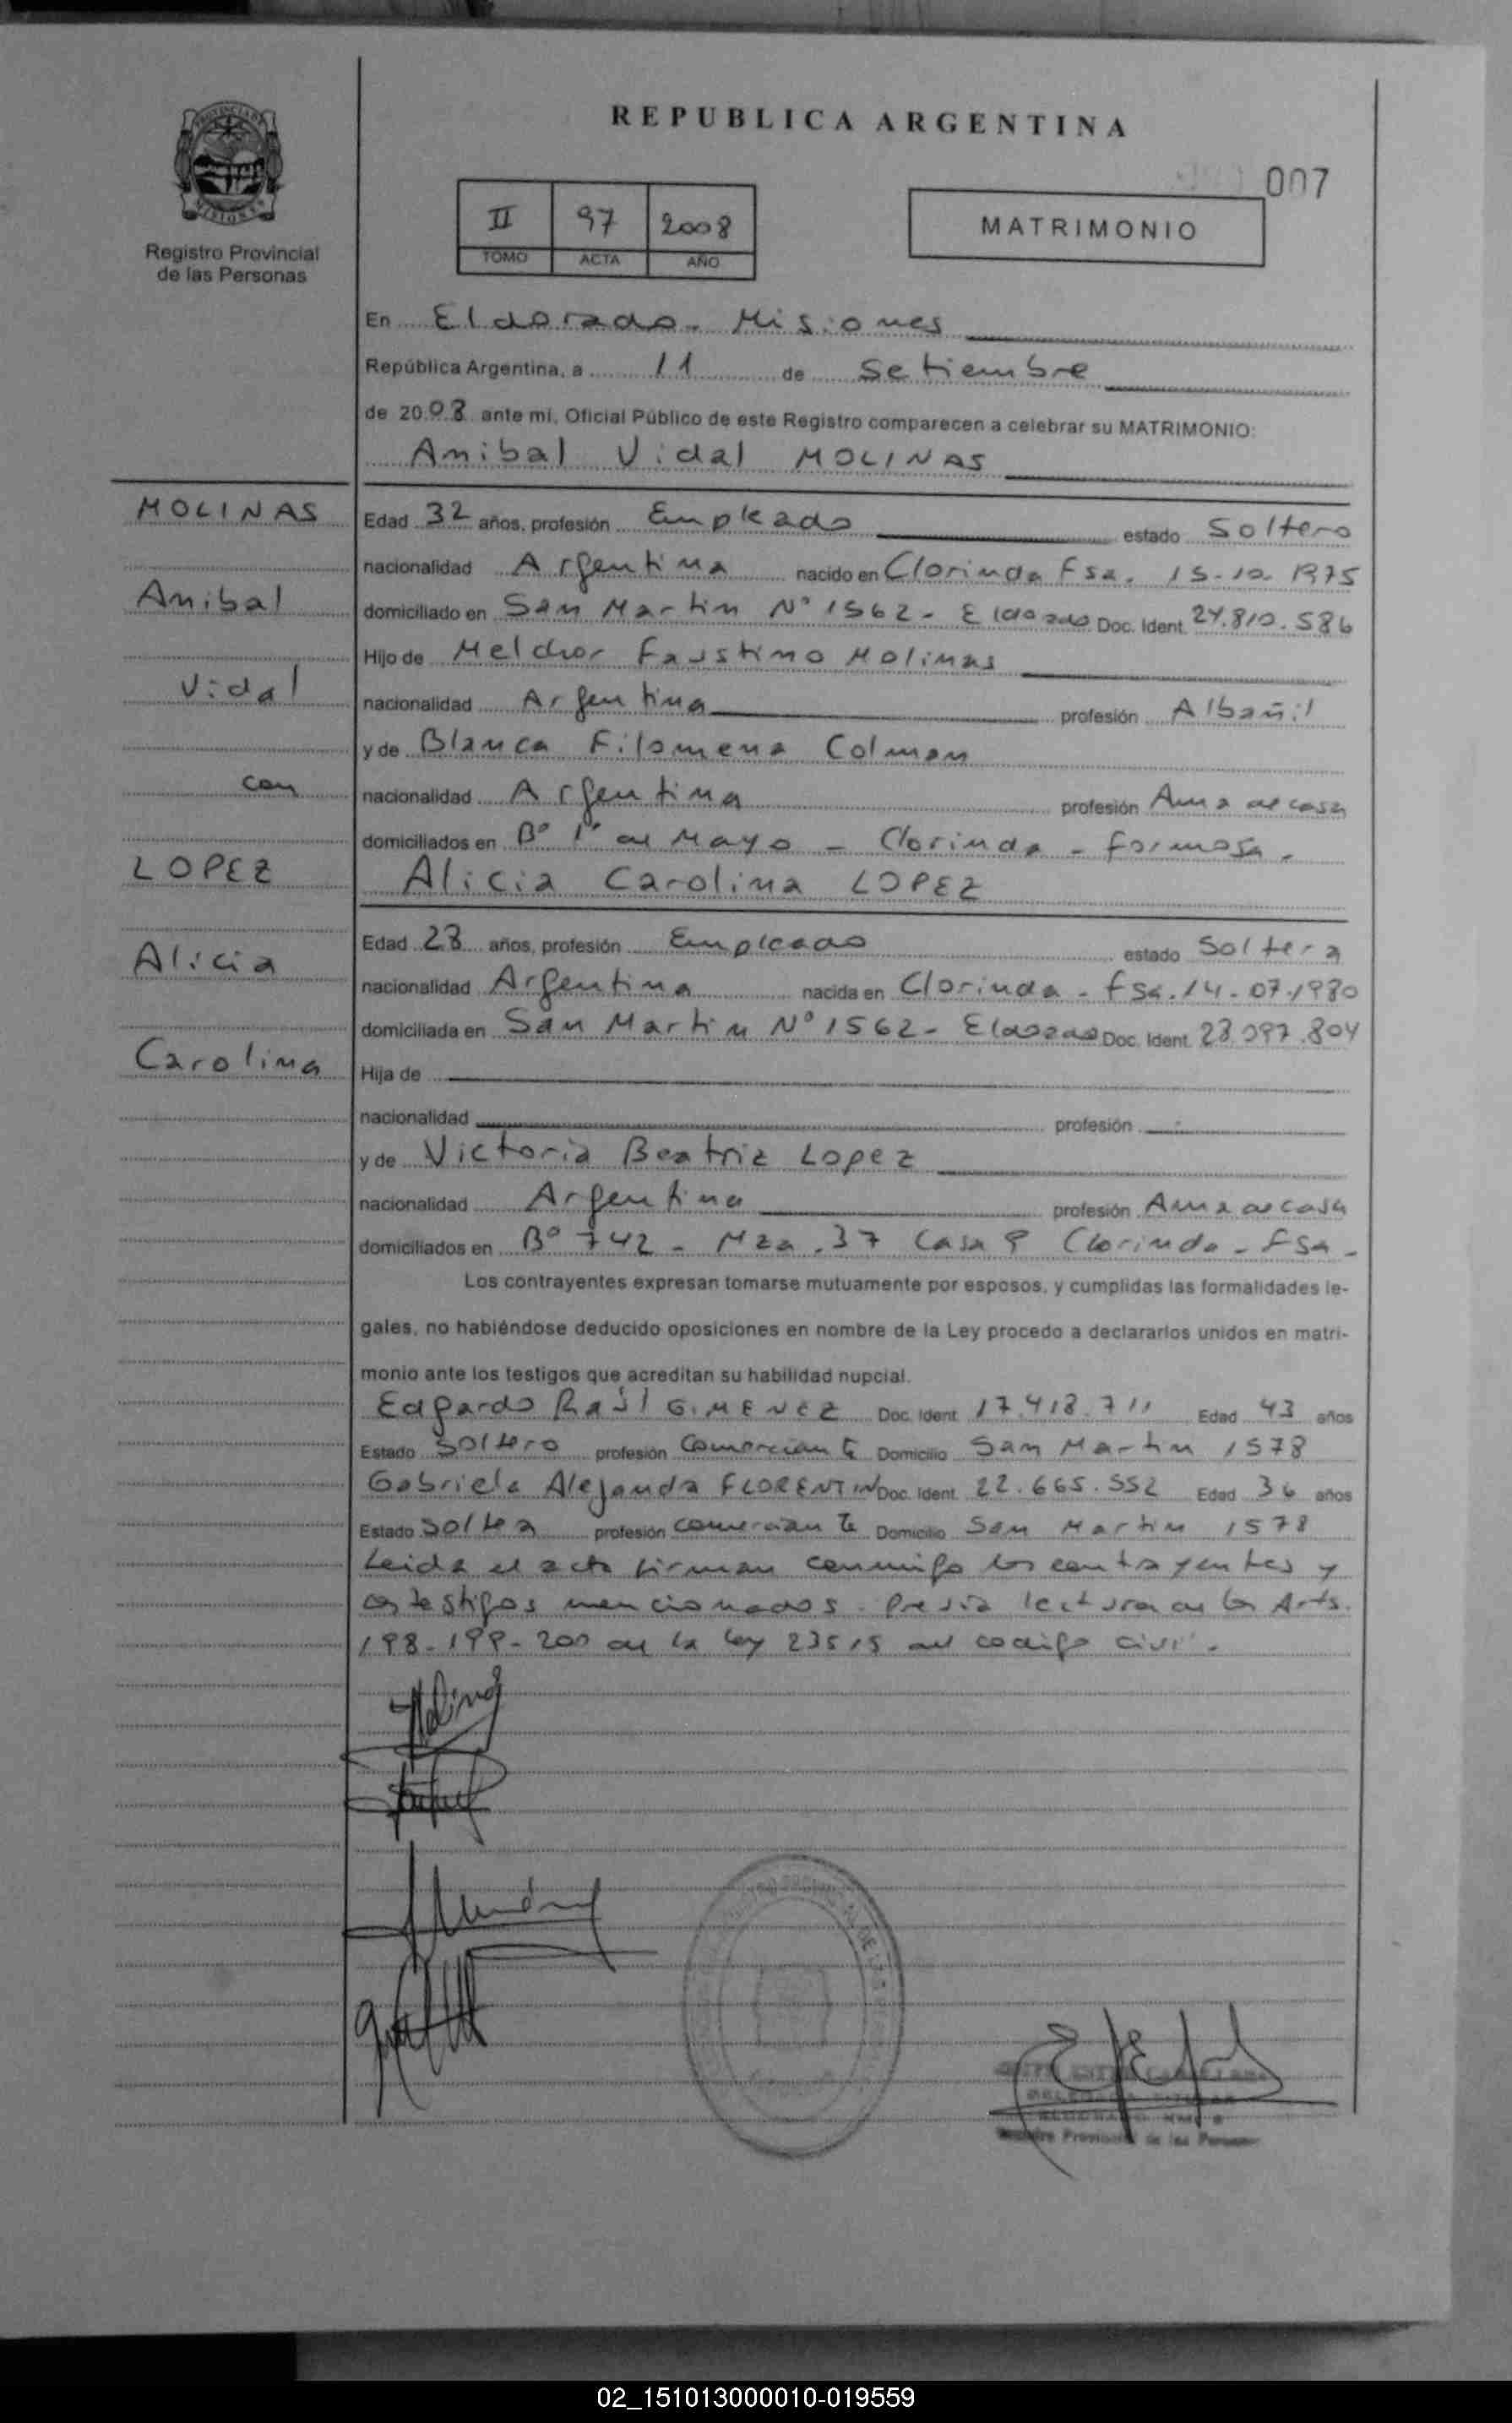 REPUBLICA ARGENTINA
007
Registro Provincial
de las Personas
II 97 2008
TOMO ACTA AÑO
MATRIMONIO
En Eldorado - Misiones
República Argentina, a 11 de Setiembre
de 2008 ante mi, Oficial Público de este Registro comparecen a celebrar su MATRIMONIO:
Anibal Vidal MOLINAS
MOLINAS
Anibal
Vidal
con
LOPEZ
Alicia
Carolina
Edad 32 años, profesión Empleado estado Soltero
nacionalidad Argentina nacido en Clorinda Fsa. 15-12-1975
domiciliado en San Martin N° 1562 - Eldorado Doc. Ident. 24.810.586
Hijo de Melchor Faustino Molinas
nacionalidad Argentina profesión Albañil
y de Blanca Filomena Colman
nacionalidad Argentina profesión Ama de casa
domiciliados en B° 1° de Mayo - Clorinda - Formosa.
Alicia Carolina LOPEZ
Edad 28 años, profesión Empleado estado Soltera
nacionalidad Argentina nacida en Clorinda - Fsa. 14-07-1980
domiciliada en San Martin N° 1562 - Eldorado Doc. Ident. 28.097.804
Hija de
nacionalidad profesión
y de Victoria Beatriz Lopez
nacionalidad Argentina profesión Ama de casa
domiciliados en B° 742 - Mza. 37 Casa 9 Clorinda - Fsa -
Los contrayentes expresan tomarse mutuamente por esposos, y cumplidas las formalidades le-
gales, no habiéndose deducido oposiciones en nombre de la Ley procedo a declararlos unidos en matri-
monio ante los testigos que acreditan su habilidad nupcial.
Edgardo Raúl GIMENEZ Doc. Ident. 17.418.711 Edad 43 años
Estado Soltero profesión Comerciante Domicilio San Martin 1578
Gabriela Alejanda FLORENTIN Doc. Ident. 22.665.552 Edad 36 años
Estado Soltea profesión comerciante Domicilio San Martin 1578
Leida el acta firman conmigo los contrayentes y
los testigos mencionados. Previa lectura de los Arts.
198-199-200 de la ley 23515 del codigo civil.
Registro Provincial de las Personas
02_151013000010-019559